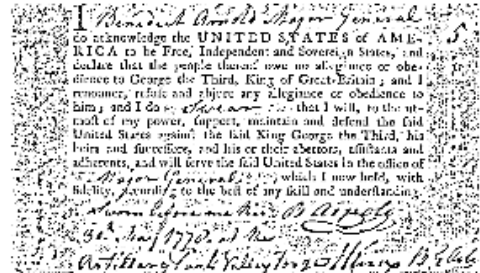 I Benedict Arnold Major General
do acknowledge the UNITED STATES of AME-
RICA to be Free, Independent and Sovereign States, and
declare that the people thereof owe no allegiance or obe-
dience to George the Third, King of Great-Britain; and I
renounce, refuse and abjure any allegiance or obedience to
him; and I do Swear that I will, to the ut-
most of my power, support, maintain and defend the said
United States against the said King George the Third, his
heirs and successors, and his or their abettors, assistants and
adherents, and will serve the said United States in the office of
Major General which I now hold, with
fidelity, according to the best of my skill and understanding.
Sworn before me this B Arnold
30th May 1778 at the
Artillary Park Valley Forge